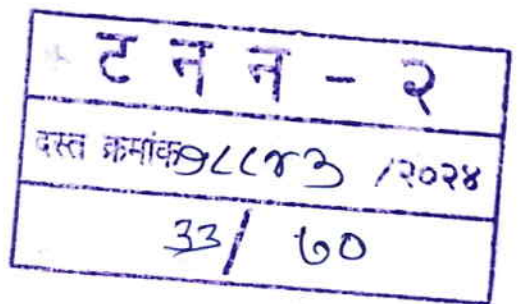 ट न न - २
दस्त क्रमांक १८८४३ /२०२४
३३/ ७०